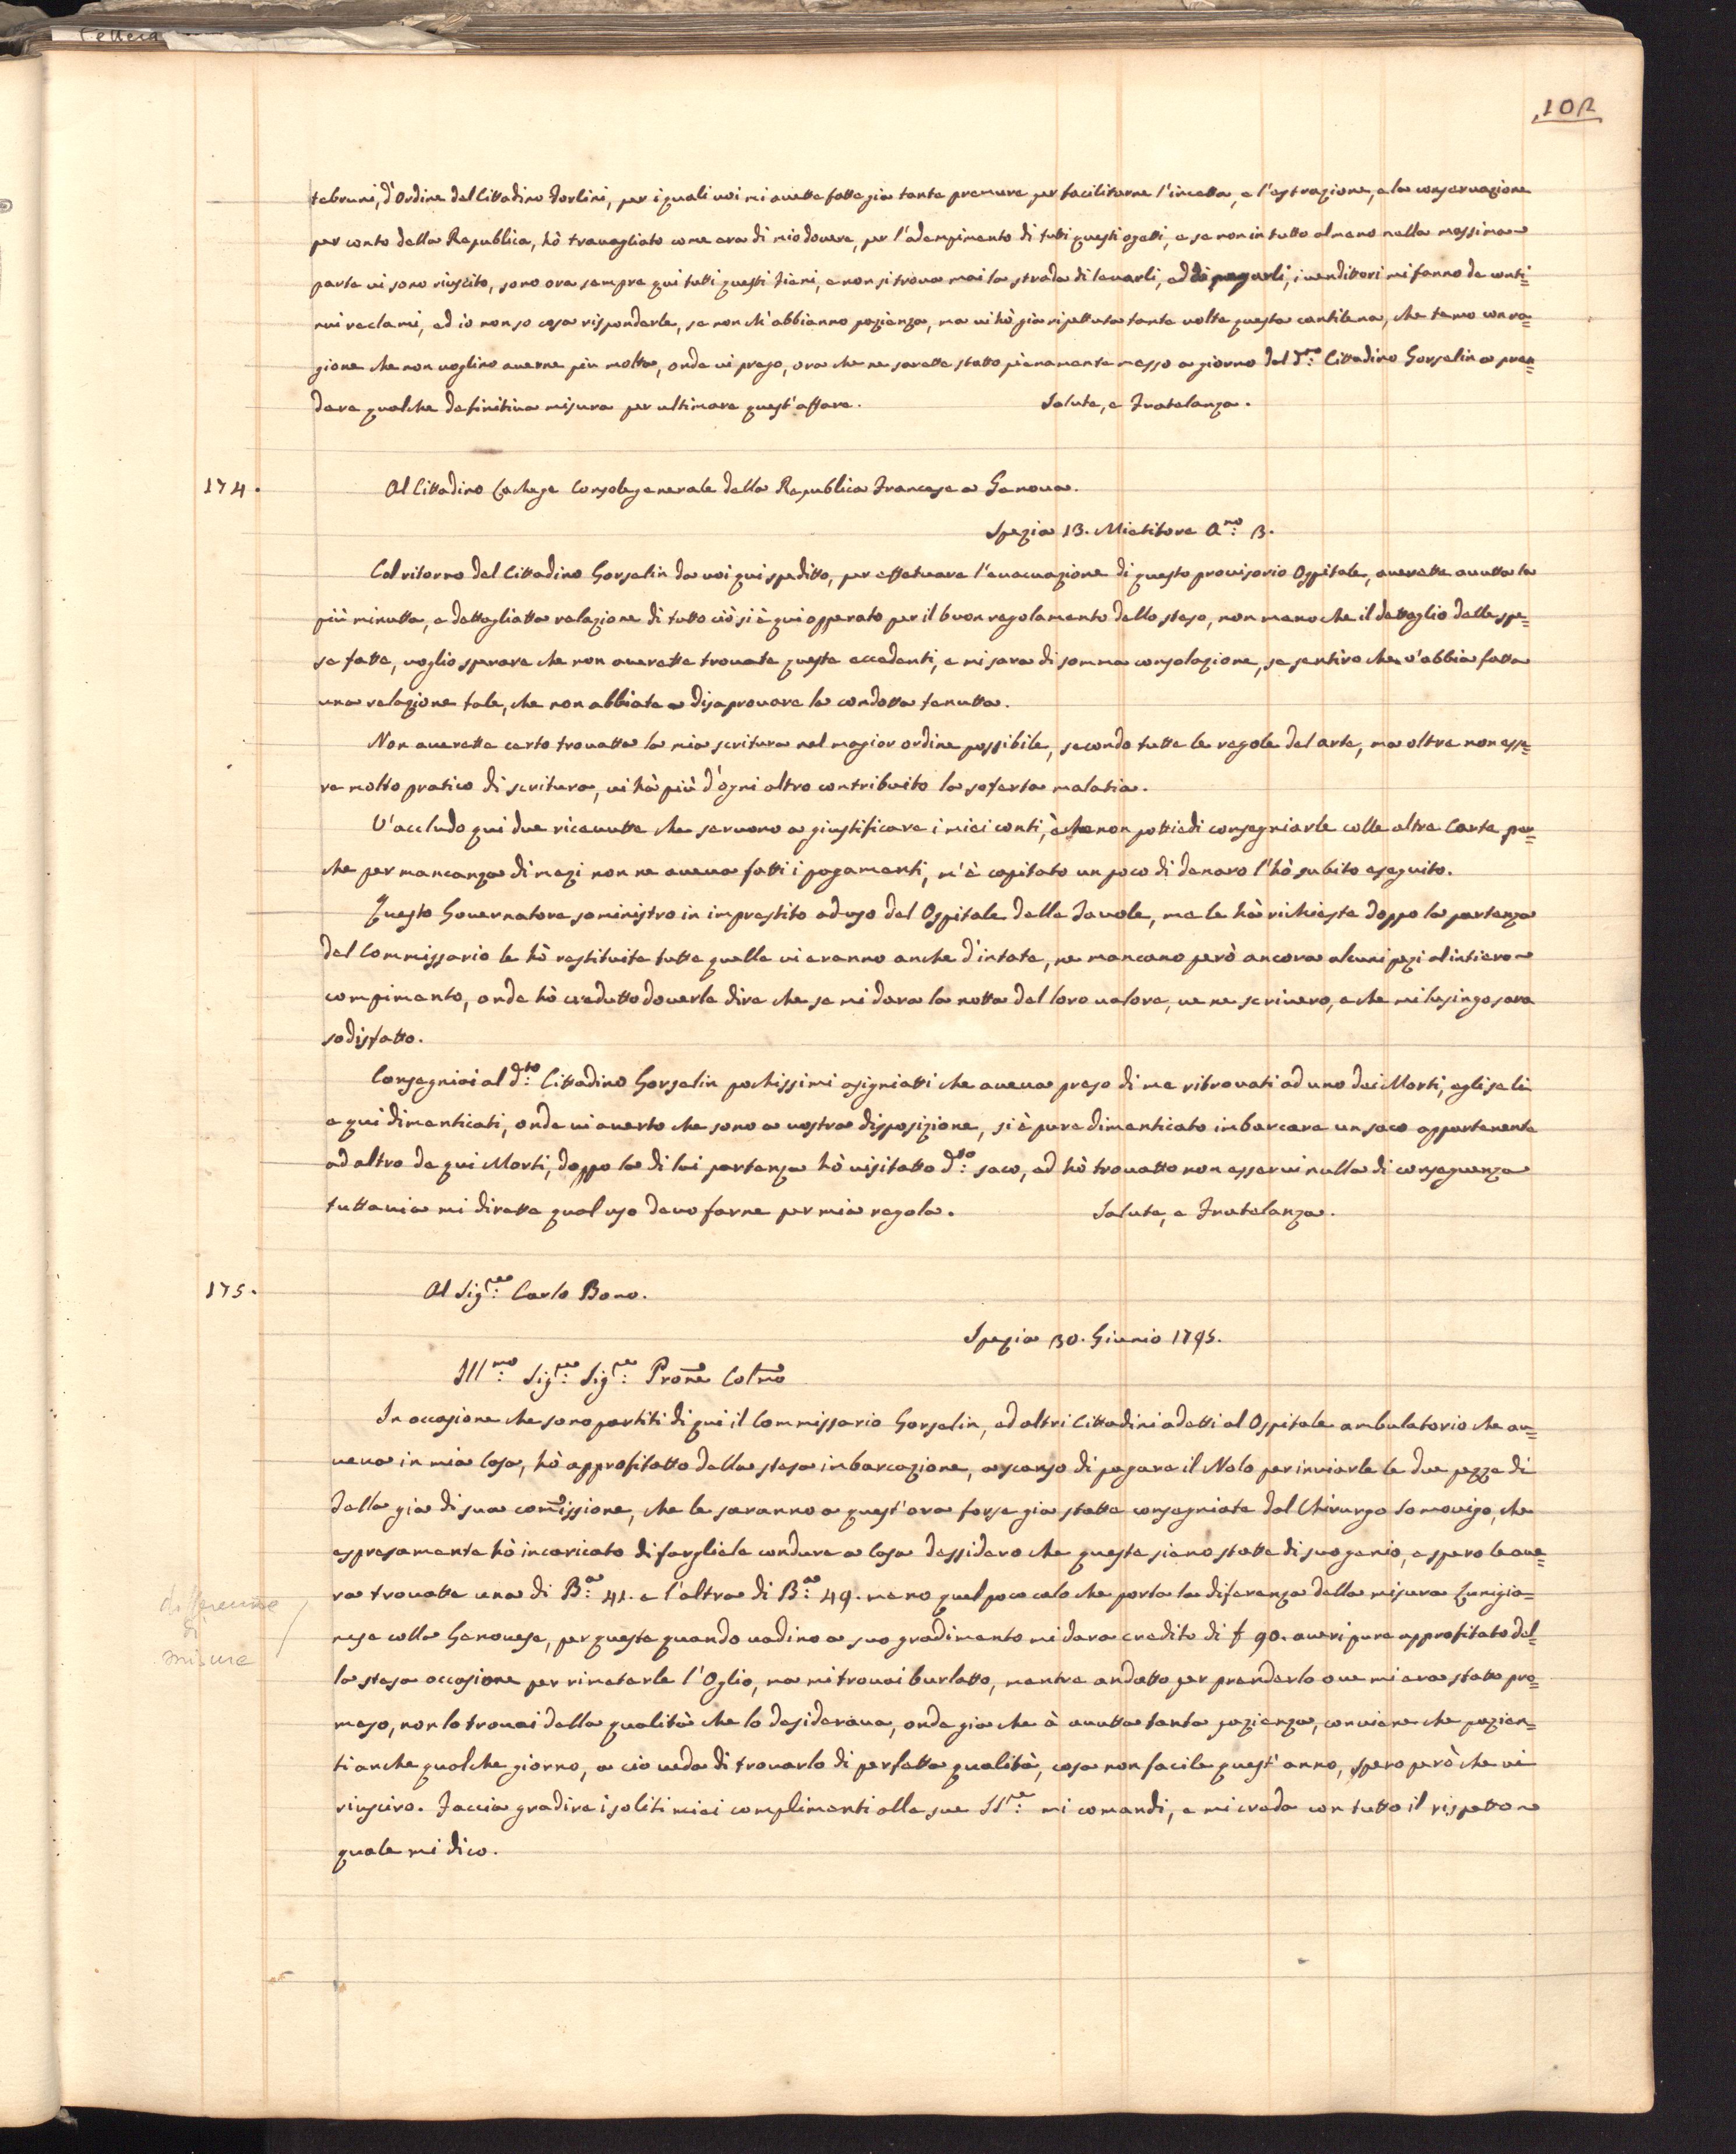 102
tebruni, d'Ordine del Cittadino Torlini, per i quali voi mi avette fatte gia tante premure per facilitarne l'incetta, e l'estrazione, e la conservazione
per conto della Republica, hò travagliato come era di mio dovere, per l'adempimento di tutti questi ogetti, e se non in tutto almeno nella massima
parte vi sono riuscito, sono ora sempre qui tutti questi fieni, e non si trova mai la strada di levarli, ed di pagarli, i vendittori mi fanno de conti=
nui reclami, ed io non so cosa risponderle, se non ch'abbianno pazienza, ma vi hò già ripettuta tante volte questa cantilena, che temo con ra=
gione che non voglino averne più molta, onde vi prego, ora che ne sarette statto pienamente messo a giorno del d.mo: Cittadino Gorselin a pren=
dere qualche definitiva misura per ultimare quest'affare. Salute, e Fratelanza.
174. Al Cittadino Cachege Console generale della Republica Francese a Genova.
Spezia 13. Mietitore A.no: 3.
Col ritorno del Cittadino Gorselin da voi qui spedito, per effetuare l'evacuazione di questo provisorio Ospitale, averette avutta la
più minutta, e dettagliatta relazione di tutto ciò si è qui opperato per il buon regolamento dello steso, non meno che il dettaglio delle spe=
se fatte, voglio sperare che non averette trovate queste eccedenti, e mi sara di somma consolazione, se sentiro che v'abbia fatta
una relazione tale, che non abbiate a disaprovare la condotta tenutta.
Non averette certo trovatta la mia scritura nel magior ordine possibile, secondo tutte le regole del arte, ma oltre non esse=
re molto pratico di scritura, vi hà più d'ogni altro contribuito la soferta malatia.
V'accludo qui due ricevutte che servono a giustificare i miei conti, e che non pottiedi consegniarle colle altre Carte per=
che per mancanza di mezi non ne aveva fatti i pagamenti, m'è capitato un poco di denaro l'hò subito eseguito.
Questo Governatore soministro in imprestito ad uso del Ospitale delle Tavole, me le hà richieste doppo la partenza
del Commissario le hò restituite tutte quelle vi eranno anche d'intate, ne mancano però ancora alcuni pezi al intiero
compimento, onde hò credutto doverle dire che se mi dara la notta del loro valore, ve ne scrivero, e che mi lusingo sara
sodisfatto.
Consegniai al d.to: Cittadino Gorselin pochissimi asigniatti che aveva preso di me ritrovati ad uno dei Morti, egli se li
e qui dimenticati, onde vi averto che sono a vostra disposizione, si è pure dimenticato imbarcare un saco appartenente
ad altro de qui Morti, doppo la di lui partenza hò visitatto d.to: saco, ed hò trovatto non esservi nulla di conseguenza
tuttavia mi dirette qual uso devo farne per mia regola. Salute, e Fratelanza.
175. Al Sig.re: Carlo Bono.
Spezia 30. Giunio 1795.
Ill.mo: Sig.re: Sig.re: Prone Colmo
In occasione che sono partiti di qui il Commissario Gorselin, ed altri Cittadini adetti al Ospitale ambulatorio che av=
veva in mia Casa, hò approfitatto della stesa imbarcazione, a scanso di pagare il Nolo per inviarle le due pezze di
Tella già di sua comissione, che le saranno a quest'ora forse gia statte consegniate dal Chirurgo Somovigo, che
espresamente hò incaricato di fargliele condure a Casa dessidero che queste siano statte di suo genio, e spero le ave=
ra trovatte una di B.a: 41. e l'altra di B.a: 49. meno quel poco calo che porta la diferenza della misura Lunigia=
nese colla Genovese, per queste quando vadino a suo gradimento mi dara credito di f 90. averi pure approfitato del=
la stesa occasione per rimeterle l'Oglio, ma mi trovai burlatto, mentre andatto per prenderlo ove mi era statto pro=
meso, non lo trovai della qualità che lo desiderava, onde gia che à avutta tanta pazienza, conviene che pazien=
ti anche qualche giorno, a cio veda di trovarlo di perfetta qualità, cosa non facile quest'anno, spero però che vi
riusciro. Faccia gradire i soliti miei complimenti alle sue SS.re: mi comandi, e mi creda con tutto il rispetto
quale mi dico.
differenze
di
misure